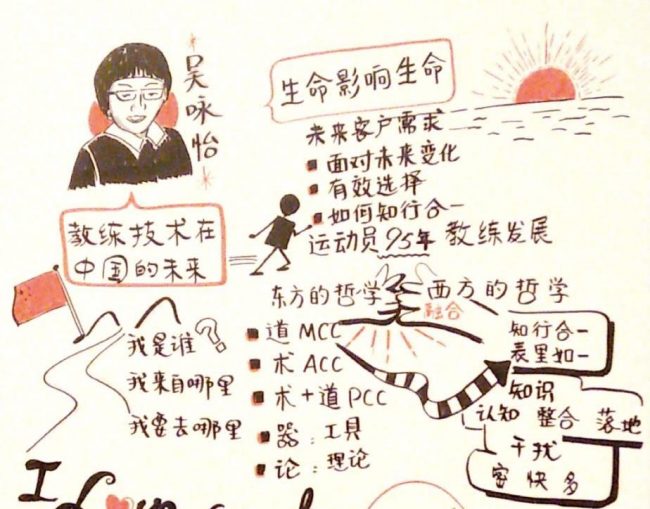 吴咏怡
生命影响生命
未来客户需求
面对未来变化
有效选择
如何知行合一
运动员95年 教练发展
教练技术在
中国的未来
东方的哲学 西方的哲学
融合
我是谁?
我来自哪里
我要去哪里
道 MCC
术 ACC
术+道 PCC
器:工具
论:理论
知行合一
表里如一
知识
认知 整合 落地
干扰
密 快 多
I